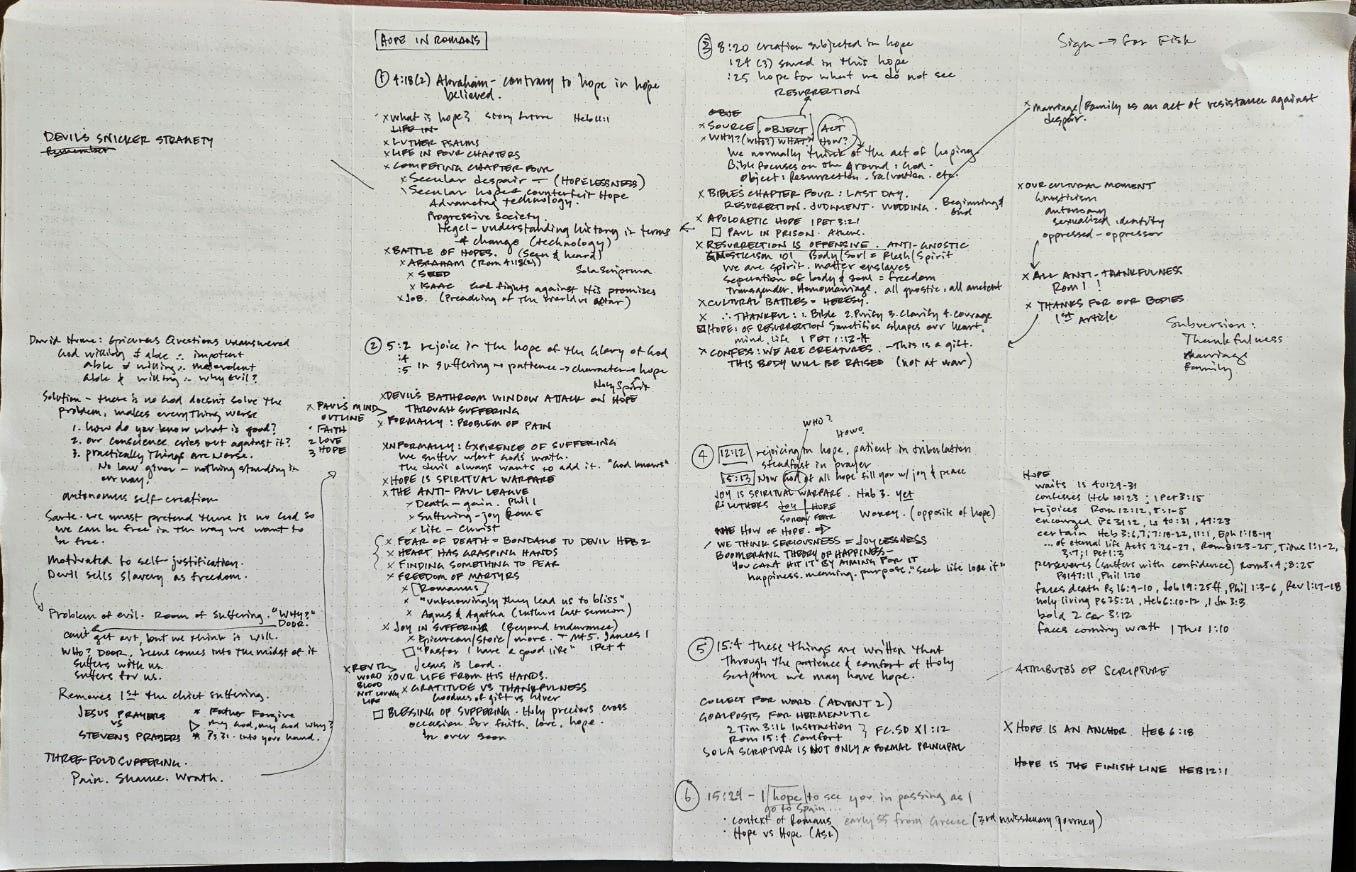 DEVIL'S SNICKER STRATEGY
Remember
David Hume: Epicurus Questions unanswered
God willing & able ∴ impotent
able & willing ∴ malevolent
able & willing ∴ why evil?
Solution - there is no God doesn't solve the
problem, makes everything worse
1. how do you know what is good?
2. our conscience cries out against it?
3. practically things are worse.
No law giver - nothing standing in
our way.
autonomous self-creation
Sartre. we must pretend there is no God so
we can be free in the way we want to
be free.
Motivated to self-justification.
Devil sells slavery as freedom.
Problem of evil. Room of suffering. "WHY?"
DOOR.
can't get out, but we think it will.
WHO? DOOR. Jesus comes into the midst of it
suffers with us.
suffers for us.
Removes 1st the chief suffering.
JESUS PRAYERS
VS
STEVENS PRAYERS
* Father Forgive
▷ My God, my God why?
* Ps 31. into your hand.
THREE-FOLD SUFFERING.
Pain. Shame. Wrath.
HOPE IN ROMANS
① 4:18(2) Abraham - contrary to hope in hope
believed.
x what is hope? story future Heb 11:1
LIFE IN
x LUTHER PSALMS
x LIFE IN FOUR CHAPTERS
x COMPETING CHAPTER FOUR
x Secular despair - (HOPELESSNESS)
x Secular hopes, counterfeit Hope
Advancing technology.
Progressive Society
Hegel - understanding history in terms
of change (technology)
x BATTLE OF HOPES. (Seen & heard)
x ABRAHAM (Rom 4:18(2))
x SEED
Sola Scriptura
x ISAAC God fights against His promises
x JOB. (Preaching of the world vs altar)
② 5:2 rejoice in the hope of the Glory of God
:4
:5 in suffering → patience → character → hope
Holy Spirit
x DEVIL'S BATHROOM WINDOW ATTACK ON HOPE
THROUGH SUFFERING
x PAUL'S MIND
OUTLINE
1 FAITH
2 LOVE
3 HOPE
x FORMALLY: PROBLEM OF PAIN
x INFORMALLY: EXPIRENCE OF SUFFERING
We suffer under God's wrath.
The devil always wants to add it. "God knows"
x HOPE IS SPIRITUAL WARFARE
x THE ANTI-PAUL LEAGUE
x Death - gain. Phil 1
x Suffering - joy Rom 5
x Life - Christ
x FEAR OF DEATH = BONDAGE TO DEVIL HEB 2
x HEART HAS GRASPING HANDS
x FINDING SOMETHING TO FEAR
x FREEDOM OF MARTYRS
x [Romanus]
x "unknowingly they lead us to bliss"
x Agnes & Agatha (Luther's last sermon)
x JOY IN SUFFERING (Beyond Endurance)
x Epicurean/Stoic/more. Mt 5. James 1
□ "Pastor I have a good life" 1 Pet 4
Jesus is Lord.
x REV 12
WORD
BLOOD
NOT LOVING
LIFE
x OUR LIFE FROM HIS HANDS.
x GRATITUDE VS THANKFULNESS
Goodness of gift vs Giver
□ BLESSING OF SUFFERING. Holy precious cross
occasion for faith, love, hope.
be over soon
③ 8:20 creation subjected in hope
:24 (3) saved in this hope
:25 hope for what we do not see
RESURRECTION
x SOURCE, OBJECT, ACT
x WHY? (WHO?) WHAT? HOW?
We normally think of the act of hoping.
Bible focuses on the ground: God.
Object: Resurrection. Salvation. etc.
x BIBLE'S CHAPTER FOUR: LAST DAY.
RESURRECTION. JUDGMENT. WEDDING. Beginning &
End
x APOLOGETIC HOPE 1 PET 3:21
□ PAUL IN PRISON. Athens.
x RESURRECTION IS OFFENSIVE. ANTI-GNOSTIC
GNOSTICISM 101 Body/Soul = Flesh/Spirit
we are spirit. matter enslaves
seperation of body & soul = freedom
Transgender. Homomarriage. all gnostic, all ancient
x CULTURAL BATTLES = HERESY.
x ∴ THANKFUL: 1. Bible 2. Purity 3. Clarity 4. courage
HOPE: OF RESURRECTION Sanctifies shapes our heart,
mind, life 1 PET 1:12-14
x CONFESS: WE ARE CREATURES. - This is a gift.
THIS BODY WILL BE RAISED (not at war)
WHO?
HOW?
④ 12:12 rejoicing in hope, patient in tribulation
steadfast in prayer
15:13 Now God of all hope fill you w/ joy & peace
JOY IS SPIRITUAL WARFARE. Hab 3. yet
LUTHERS JOY | HOPE
SORROW FEAR
Worry. (opposite of hope)
HOW OF HOPE.
WE THINK SERIOUSNESS = JOYLESSNESS
BOOMERANG THEORY OF HAPPINESS -
YOU CAN'T HIT IT BY AIMING FOR IT
happiness. meaning. purpose. "seek life lose it"
⑤ 15:4 these things are written that
through the patience & comfort of Holy
Scripture we may have hope.
COLLECT FOR WORD (ADVENT 2)
GOALPOSTS FOR HERMENEUTIC
2 Tim 3:16 Instruction
Rom 15:4 Comfort
} FC.SD XI:12
SOLA SCRIPTURA IS NOT ONLY A FORMAL PRINCIPAL
⑥ 15:24 - I hope to see you in passing as I
go to Spain...
• context of Romans early 55 from Greece (3rd missionary journey)
• Hope vs Hope (Ask)
Sign → for Fisk
x marriage/Family is an act of resistance against
despair.
x OUR CULTURAL MOMENT
Gnosticism
autonomy
sexualized identity
oppressed - oppressor
x ALL ANTI-THANKFULNESS
ROM 1!
x THANKS FOR OUR BODIES
1st Article
Subversion:
Thankfulness
marriage
Family
HOPE
waits Is 40:29-31
confesses Heb 10:23; 1 Pet 3:15
rejoices Rom 12:12, 5:1-5
encouraged Ps 31:12, Is 40:31, 49:23
certain Heb 3:6, 7:18-22, 11:1, Eph 1:18-19
... of eternal life Acts 2:26-27, Rom 8:23-25, Titus 1:1-2,
3:7; 1 Pet 1:3
perseveres (suffers with confidence) Rom 5:4, 8:25
Ps 147:11, Phil 1:20
faces death Ps 16:9-10, Job 19:25ff, Phil 1:3-6, Rev 1:17-18
holy living Ps 35:21, Heb 6:10-12, 1 Jn 3:3
bold 2 Cor 3:12
faces coming wrath 1 Thes 1:10
ATTRIBUTES OF SCRIPTURE
x HOPE IS AN ANCHOR. HEB 6:18
HOPE IS THE FINISH LINE HEB 12:1